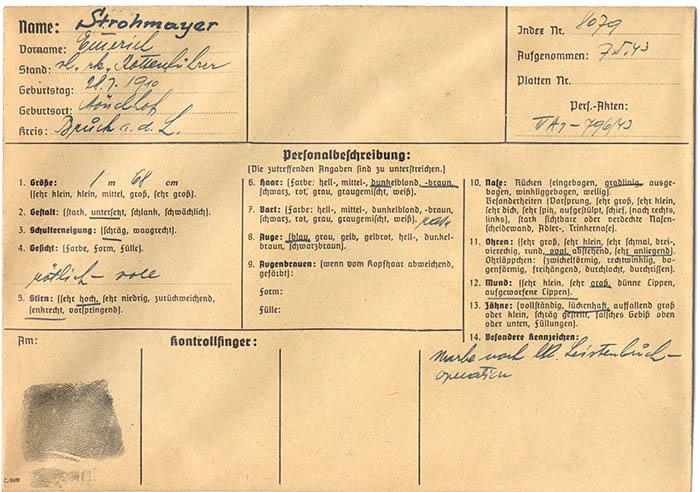 Name: Strohmayer
Vorname: Emerich
Stand: vl. rk. Rottenführer
Geburtstag: 28.7.1910
Geburtsort: Mönchhof
Kreis: Bruck a. d. L.
Index Nr. 8079
Aufgenommen: 7.5.43
Platten Nr.
Pers.-Akten:
VA1-796/43
Personalbeschreibung:
(Die zutreffenden Angaben sind zu unterstreichen.)
1. Größe: 1 m 68 cm
(sehr klein, klein, mittel, groß, sehr groß).
2. Gestalt: (stark, untersetzt, schlank, schwächlich).
3. Schulterneigung: (schräg, waagrecht).
4. Gesicht: (Farbe, Form, Fülle).
rötlich - voll
5. Stirn: (sehr hoch, sehr niedrig, zurückweichend,
senkrecht, vorspringend).
6. Haar: (Farbe: hell-, mittel-, dunkelblond, -braun,
schwarz, rot, grau, graugemischt, weiß).
7. Bart: (Farbe: hell-, mittel-, dunkelblond, -braun,
schwarz, rot, grau, graugemischt, weiß).
8. Auge: (blau, grau, gelb, gelbrot, hell-, dunkel-
braun, schwarzbraun).
9. Augenbrauen: (wenn vom Kopfhaar abweichend,
gefärbt):
Form:
Fülle:
10. Nase: Rücken (eingebogen, gradlinig, ausge-
bogen, winkliggebogen, wellig).
Besonderheiten (Vorsprung, sehr groß, sehr klein,
sehr dick, sehr spitz, aufgestülpt, schief, (nach rechts,
links), stark sichtbare oder verdeckte Nasen-
scheidewand, Adler-, Trinkernase).
11. Ohren: (sehr groß, sehr klein, sehr schmal, drei-,
viereckig, rund, oval, abstehend, sehr anliegend).
Ohrläppchen: (zwickelförmig, rechtwinklig, bo-
genförmig, freihängend, durchlocht, durchrissen).
12. Mund: (sehr klein, sehr groß, dünne Lippen,
aufgeworfene Lippen).
13. Zähne: (vollständig, lückenhaft, auffallend groß
oder klein, schräg gestellt, falsches Gebiß oben
oder unten, Füllungen).
14. Besondere Kennzeichen:
Narbe nach Leistenbruch-
operation
Am:
Kontrollfinger: